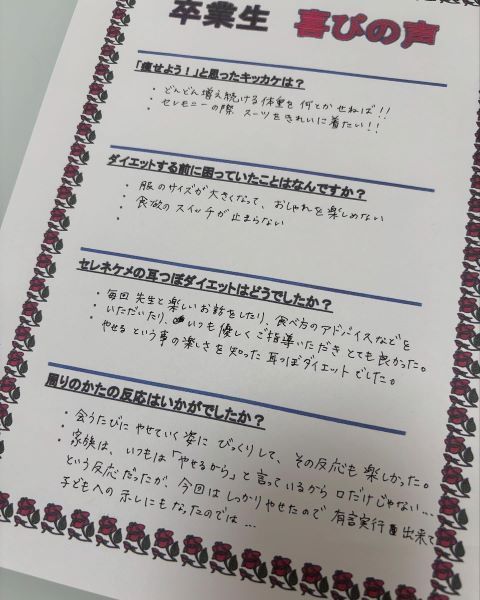 卒業生 喜びの声
「痩せよう！」と思ったキッカケは？
・どんどん増え続ける体重を何とかせねば!!
・セレモニーの際 スーツをきれいに着たい!!
ダイエットする前に困っていたことはなんですか？
・服のサイズが大きくなって、おしゃれを楽しめない
・食欲のスイッチが止まらない
・
セレネケメの耳つぼダイエットはどうでしたか？
・毎回 先生と楽しいお話をしたり、食べ方のアドバイスなどを
いただいたり、いつも優しくご指導いただき とても良かった。
やせる という事の楽しさを知った 耳つぼダイエットでした。
周りのかたの反応はいかがでしたか？
・会うたびに やせていく姿に びっくりして、その反応も楽しかった。
・家族は、いつもは「やせるから」と言っているから 口だけじゃない…
という反応だったが、今回は しっかりやせたので 有言実行 出来て
子どもへの 示しにもなったのでは…